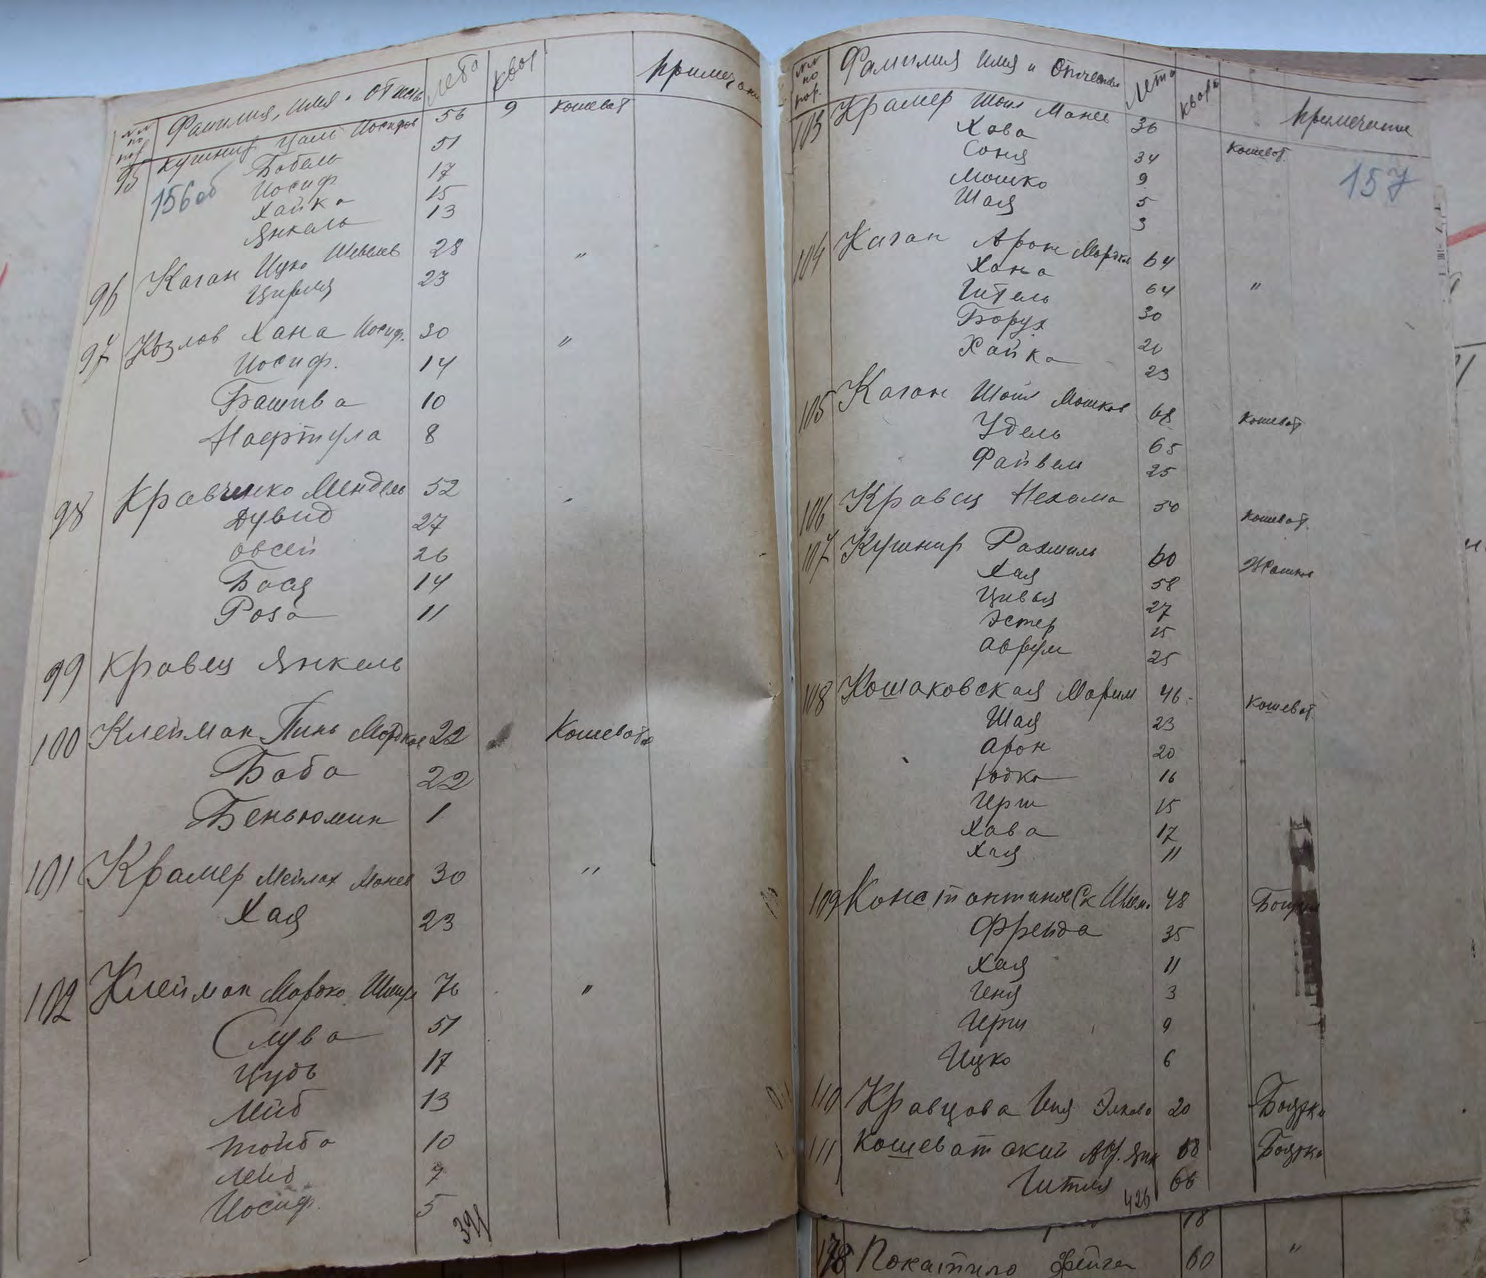 №№ по пор. Фамилия, имя и отчес Лета квот Примечани
95 Кушнир Цаль Иосифов 56 9 Кошеват
Бобель 51
156об Иосиф 17
Хайка 15
Янкель 13
96 Каган Ицко 28 "
Цирля 23
97 Козлов Хана Иосиф. 30 "
Иосиф. 14
Башива 10
8
98 Кравченко Мендель 52
Дувид 27
Овсей 26
Бася 14
Роза 11
99 Кравец Янкель
100 Клейман Пинь Мордков 22 Кошевата
Баба 22
Беньюмин 1
101 Крамер Мейлах Манев 30 "
Хая 23
102 Клейман Мордко 76 "
Слува 51
17
Лейб 13
Тойба 10
Лейб 7
Иосиф. 5
391
№№ по пор. Фамилия имя и Отчество Лета квор Примечание
103 Крамер Шоил Манев 36 Кошеват
Хава 34
Соня 9 157
Мошко 5
Шая 3
104 Каган Арон Мордков 64 "
Хана 64
Гитель 30
Борух 20
Хайка 23
105 Каган Шоил Мошков 68 Кошеват
Удель 65
Файвел 25
106 Кравец Нехама 50 Кошеват
107 Кушнир Рахмиль 60 Жашков
Хая 58
Цивья 27
Эстер 25
Аврум 25
108 Кошаковская Марим 46 Кошеват
Шая 23
Арон 20
Юдко 16
Герш 15
Хава 17
Хая 11
109 Константиновск 48
Фрейда 35
Хая 11
Геня 3
Герш 9
Ицко 6
110 Кравцова 20 Боярка
111 Кошеватский 68 Боярка
Гитля 66
426
18
178 Покатило Фейга 60 "